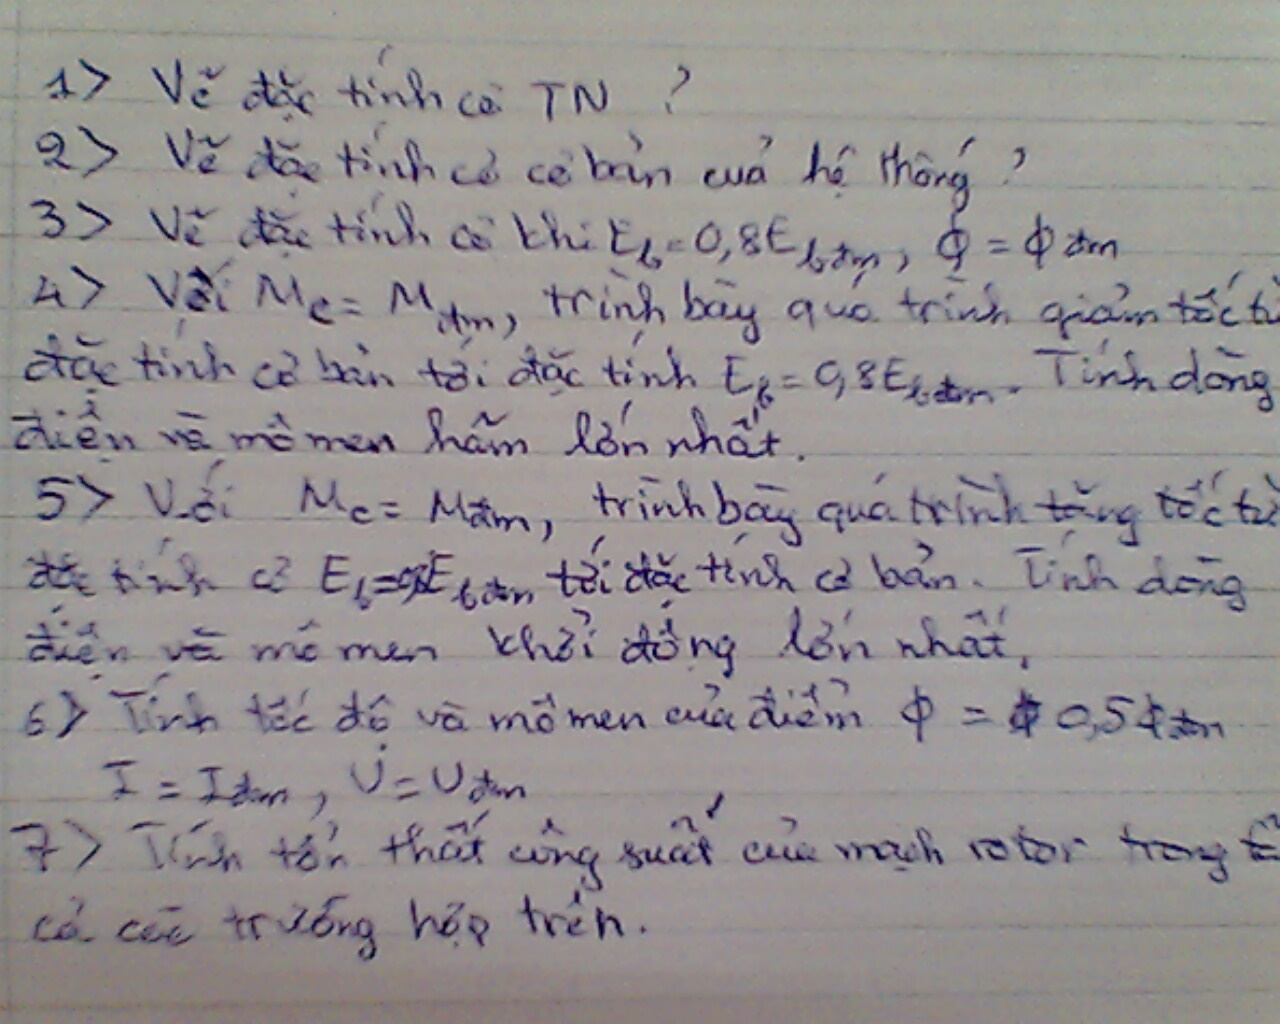 1> Vẽ đặc tính cơ TN ?
2> Vẽ đặc tính cơ cơ bản của hệ thống ?
3> Vẽ đặc tính cơ khi Eb = 0,8Ebđm, ϕ = ϕđm
4> Với Mc = Mđm, trình bày quá trình giảm tốc từ
đặc tính cơ bản tới đặc tính Eb = 0,8Ebđm. Tính dòng
điện và mô men hãm lớn nhất.
5> Với Mc = Mđm, trình bày quá trình tăng tốc từ
đặc tính cơ Eb = 0,8Ebđm tới đặc tính cơ bản. Tính dòng
điện và mô men khởi động lớn nhất.
6> Tính tốc độ và mô men của điểm ϕ = 0,5ϕđm
I = Iđm, U = Uđm
7> Tính tổn thất công suất của mạch rotor trong
cả các trường hợp trên.